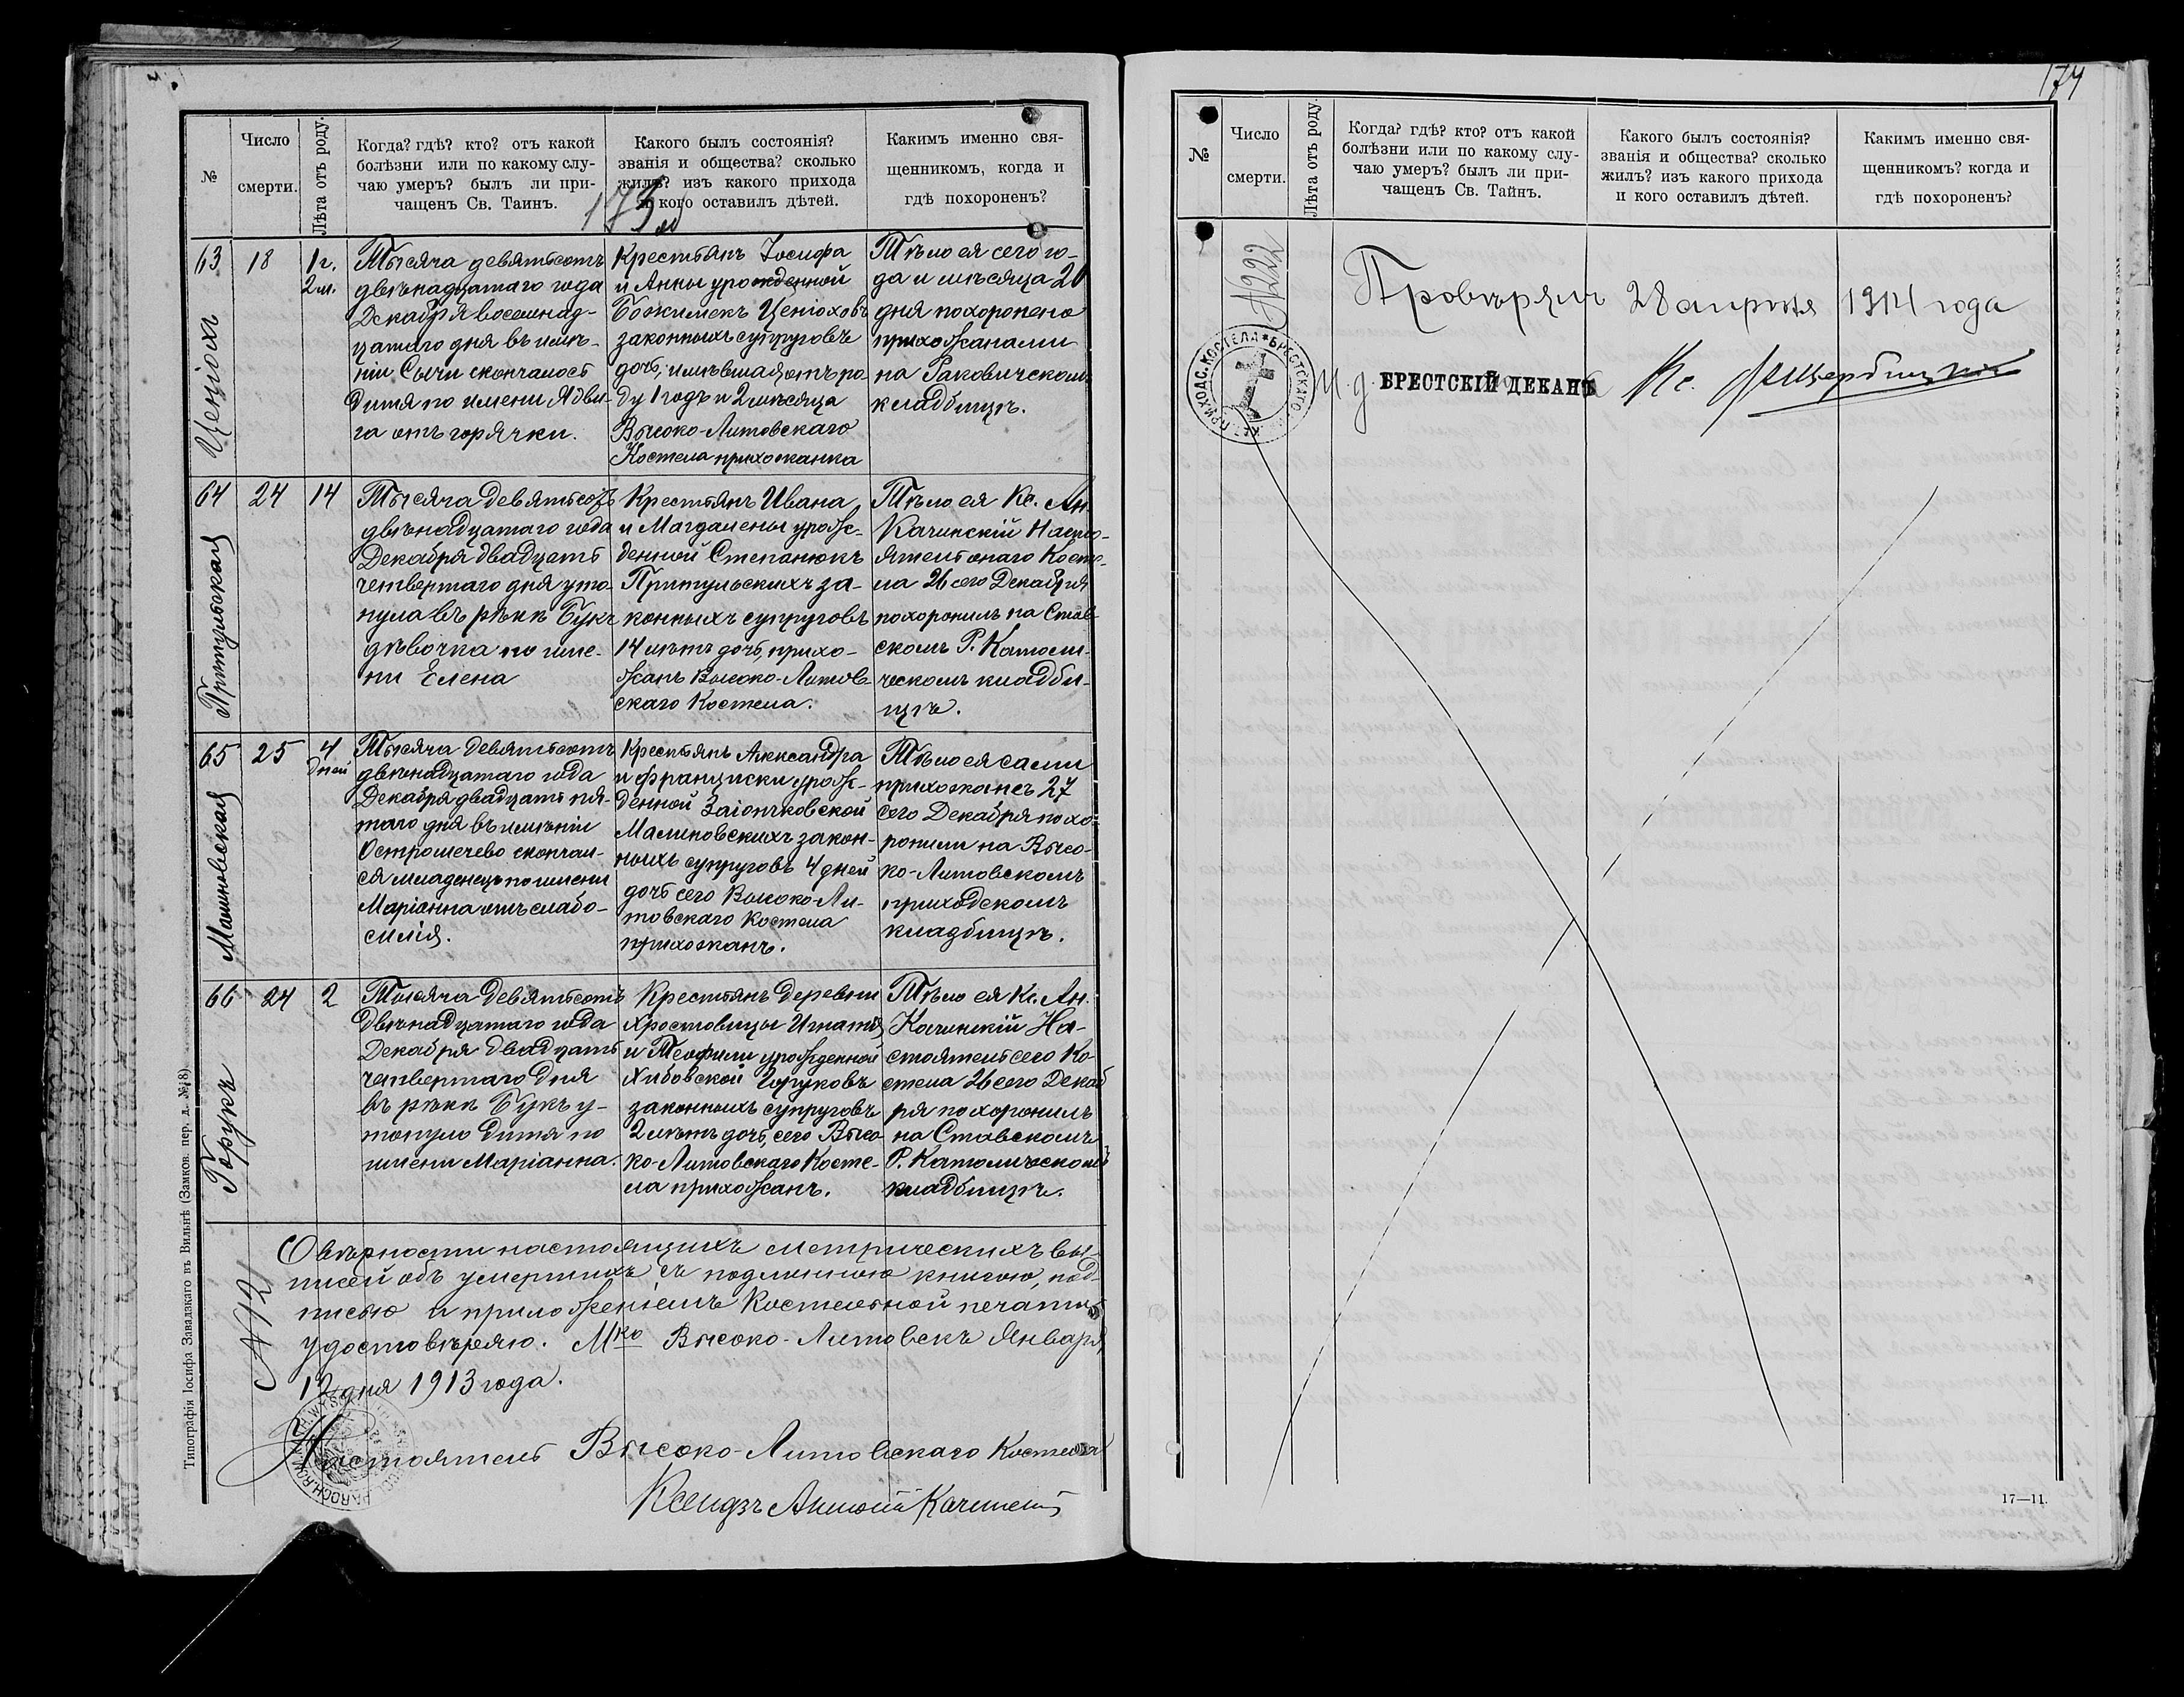 №
Число
смерти.
Лѣта отъ роду.
Когда? гдѣ? кто? отъ какой
болѣзни или по какому слу-
чаю умеръ? былъ ли при-
чащенъ Св. Таинъ.
Какого былъ состоянія?
званія и общества? сколько
жилъ? изъ какого прихода
и кого оставилъ дѣтей.
Какимъ именно свя-
щенникомъ, когда и
гдѣ похороненъ?
173
63
18
1 г.
2 м.
Ценюхъ
Тысяча девятьсотъ
двѣнадцатаго года
Декабря восемнад-
цатаго дня въ имѣ-
ніи Сычи скончалось
дитя по имени Ядви-
га отъ горячки.
Крестьянъ Іосифа
и Анны урожденной
Божимекъ Ценюховъ
законныхъ супруговъ
дочь, имѣвшая отъ ро-
ду 1 годъ и 2 мѣсяца
Высоко-Литовскаго
Костела прихожанка
Тѣло ея сего го-
да и мѣсяца 20
дня похоронено
прихожанами
на Раковичскомъ
кладбищѣ.
64
24
14
Притульская
Тысяча девятьсотъ
двѣнадцатаго года
Декабря двадцать
четвертаго дня уто-
нула въ рѣкѣ Букъ
дѣвочка по име-
ни Елена
Крестьянъ Ивана
и Магдалены урож-
денной Степанюкъ
Притульскихъ за-
конныхъ супруговъ
14 лѣтъ дочь, прихо-
жанъ Высоко-Литов-
скаго Костела.
Тѣло ея Кс. Ан.
Качинскій Насто-
ятель онаго Косте-
ла 26 сего Декабря
похоронилъ на Став-
скомъ Р. Католи-
ческомъ кладби-
щѣ.
65
25
4
дней
Малиновская
Тысяча девятьсотъ
двѣнадцатаго года
Декабря двадцать пя-
таго дня въ имѣніи
Остромечево скончал-
ся младенецъ по имени
Маріанна отъ слабо-
силія.
Крестьянъ Александра
и Франциски урож-
денной Заіончковской
Малиновскихъ закон-
ныхъ супруговъ 4 дней
дочь сего Высоко-Ли-
товскаго Костела
прихожанъ.
Тѣло ея сами
прихожане 27
сего Декабря похо-
ронили на Высо-
ко-Литовскомъ
приходскомъ
кладбищѣ.
66
24
2
Горукъ
Тысяча девятьсотъ
двѣнадцатаго года
Декабря двадцать
четвертаго дня
въ рѣкѣ Букъ у-
тонуло дитя по
имени Маріанна.
Крестьянъ деревни
Хростовицы Игнатія
и Теофили урожденной
Хибовской Горуковъ
законныхъ супруговъ
2 лѣтъ дочь, сего Высо-
ко-Литовскаго Косте-
ла прихожанъ.
Тѣло ея Кс. Ан.
Качинскій На-
стоятель сего Ко-
стела 26 сего Декаб
ря похоронилъ
на Ставскомъ
Р. Католическомъ
кладбищѣ.
№ 12
О вѣрности настоящихъ метрическихъ вы-
писей объ умершихъ съ подлинною книгою, под-
писью и приложеніемъ Костельной печати
удостовѣряю. Мко Высоко-Литовскъ Января
12 дня 1913 года.
Настоятель Высоко-Литовскаго Костела
Ксендзъ Антоній Качинскій
Типографія Іосифа Завадзкаго въ Вильнѣ (Замков. пер. д. № 8)
174
№
Число
смерти.
Лѣта отъ роду.
Когда? гдѣ? кто? отъ какой
болѣзни или по какому слу-
чаю умеръ? былъ ли при-
чащенъ Св. Тайнъ.
Какого былъ состоянія?
званія и общества? сколько
жилъ? изъ какого прихода
и кого оставилъ дѣтей.
Какимъ именно свя-
щенникомъ? когда и
гдѣ похороненъ?
№222
Провѣрялъ 28 апрѣля 1914 года
И. д. БРЕСТСКІЙ ДЕКАНЪ Кс.
17—11.